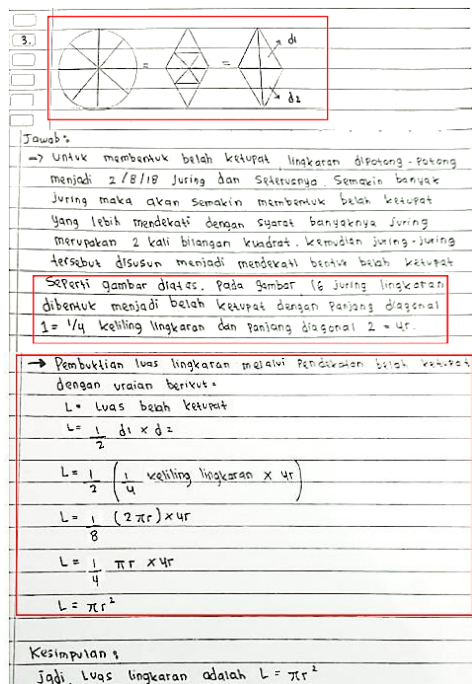 3.
d1
=
=
d2
Jawab :
→ Untuk membentuk belah ketupat lingkaran dipotong-potong
menjadi 2/8/18 juring dan seterusnya. Semakin banyak
juring maka akan semakin membentuk belah ketupat
yang lebih mendekati dengan syarat banyaknya juring
merupakan 2 kali bilangan kuadrat. kemudian juring-juring
tersebut disusun menjadi mendekati bentuk belah ketupat
Seperti gambar diatas. Pada gambar 16 juring lingkaran
dibentuk menjadi belah ketupat dengan panjang diagonal
1 = 1/4 keliling lingkaran dan panjang diagonal 2 = 4r.
→ Pembuktian luas lingkaran melalui pendekatan belah ketupat
dengan uraian berikut :
L = Luas belah ketupat
L = 1/2 d1 x d2
L = 1/2 (1/4 keliling lingkaran x 4r)
L = 1/8 (2πr) x 4r
L = 1/4 πr x 4r
L = πr²
Kesimpulan :
jadi, Luas lingkaran adalah L = πr²